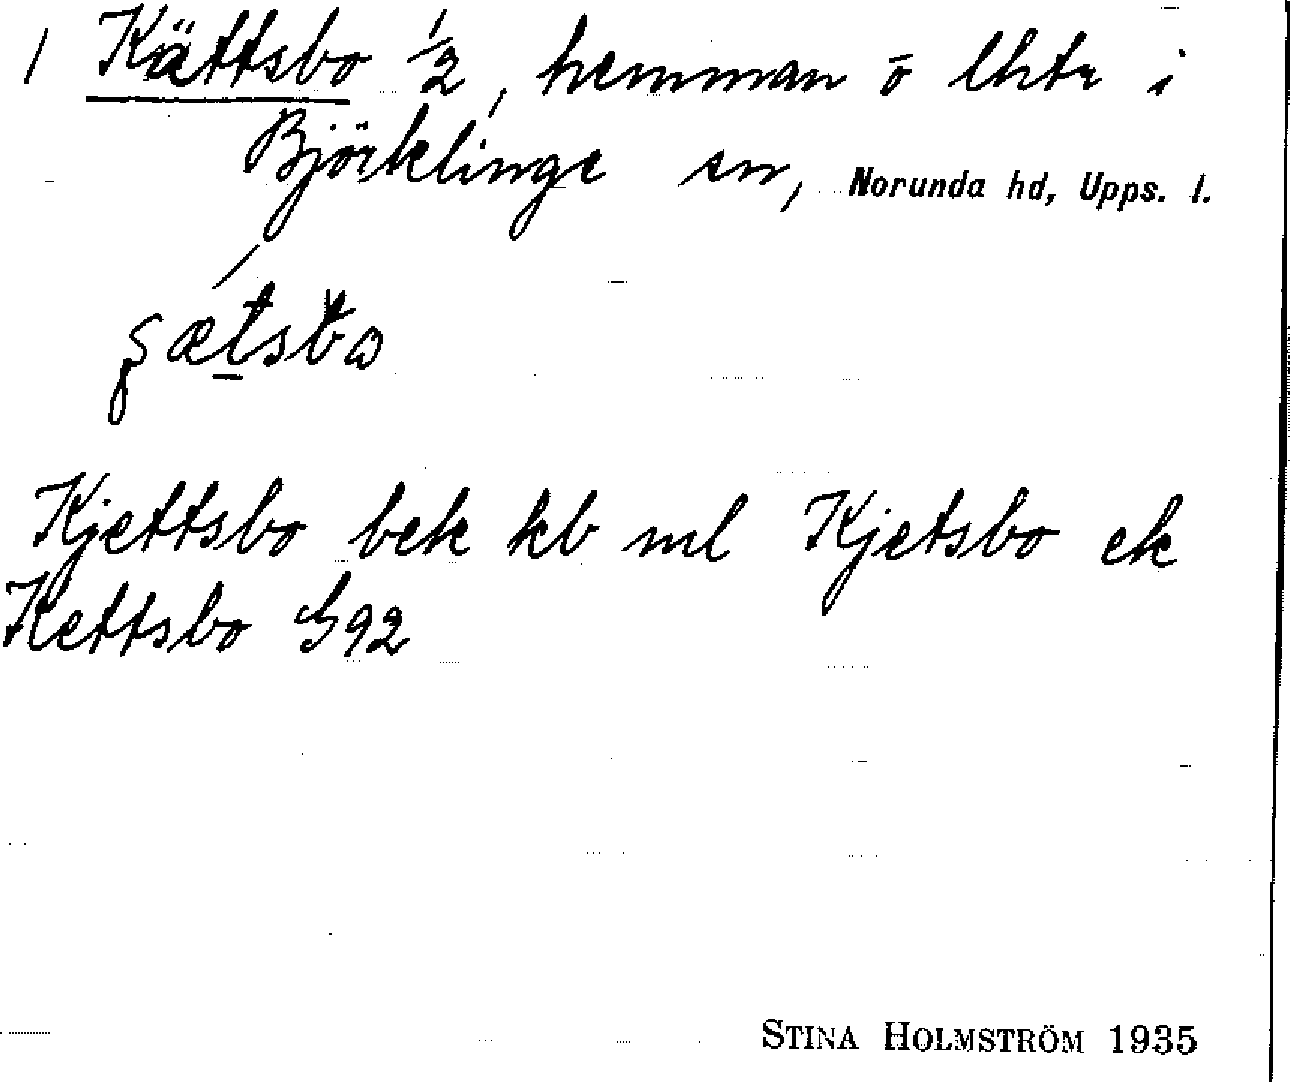 / Kättsbo 1/2, hemman o lhtr i
Björklinge sn, Norunda hd, Upps. l.
Kjettsbo bek kb ml Kjetsbo ek
Kettsbo G92
STINA HOLMSTRÖM 1935